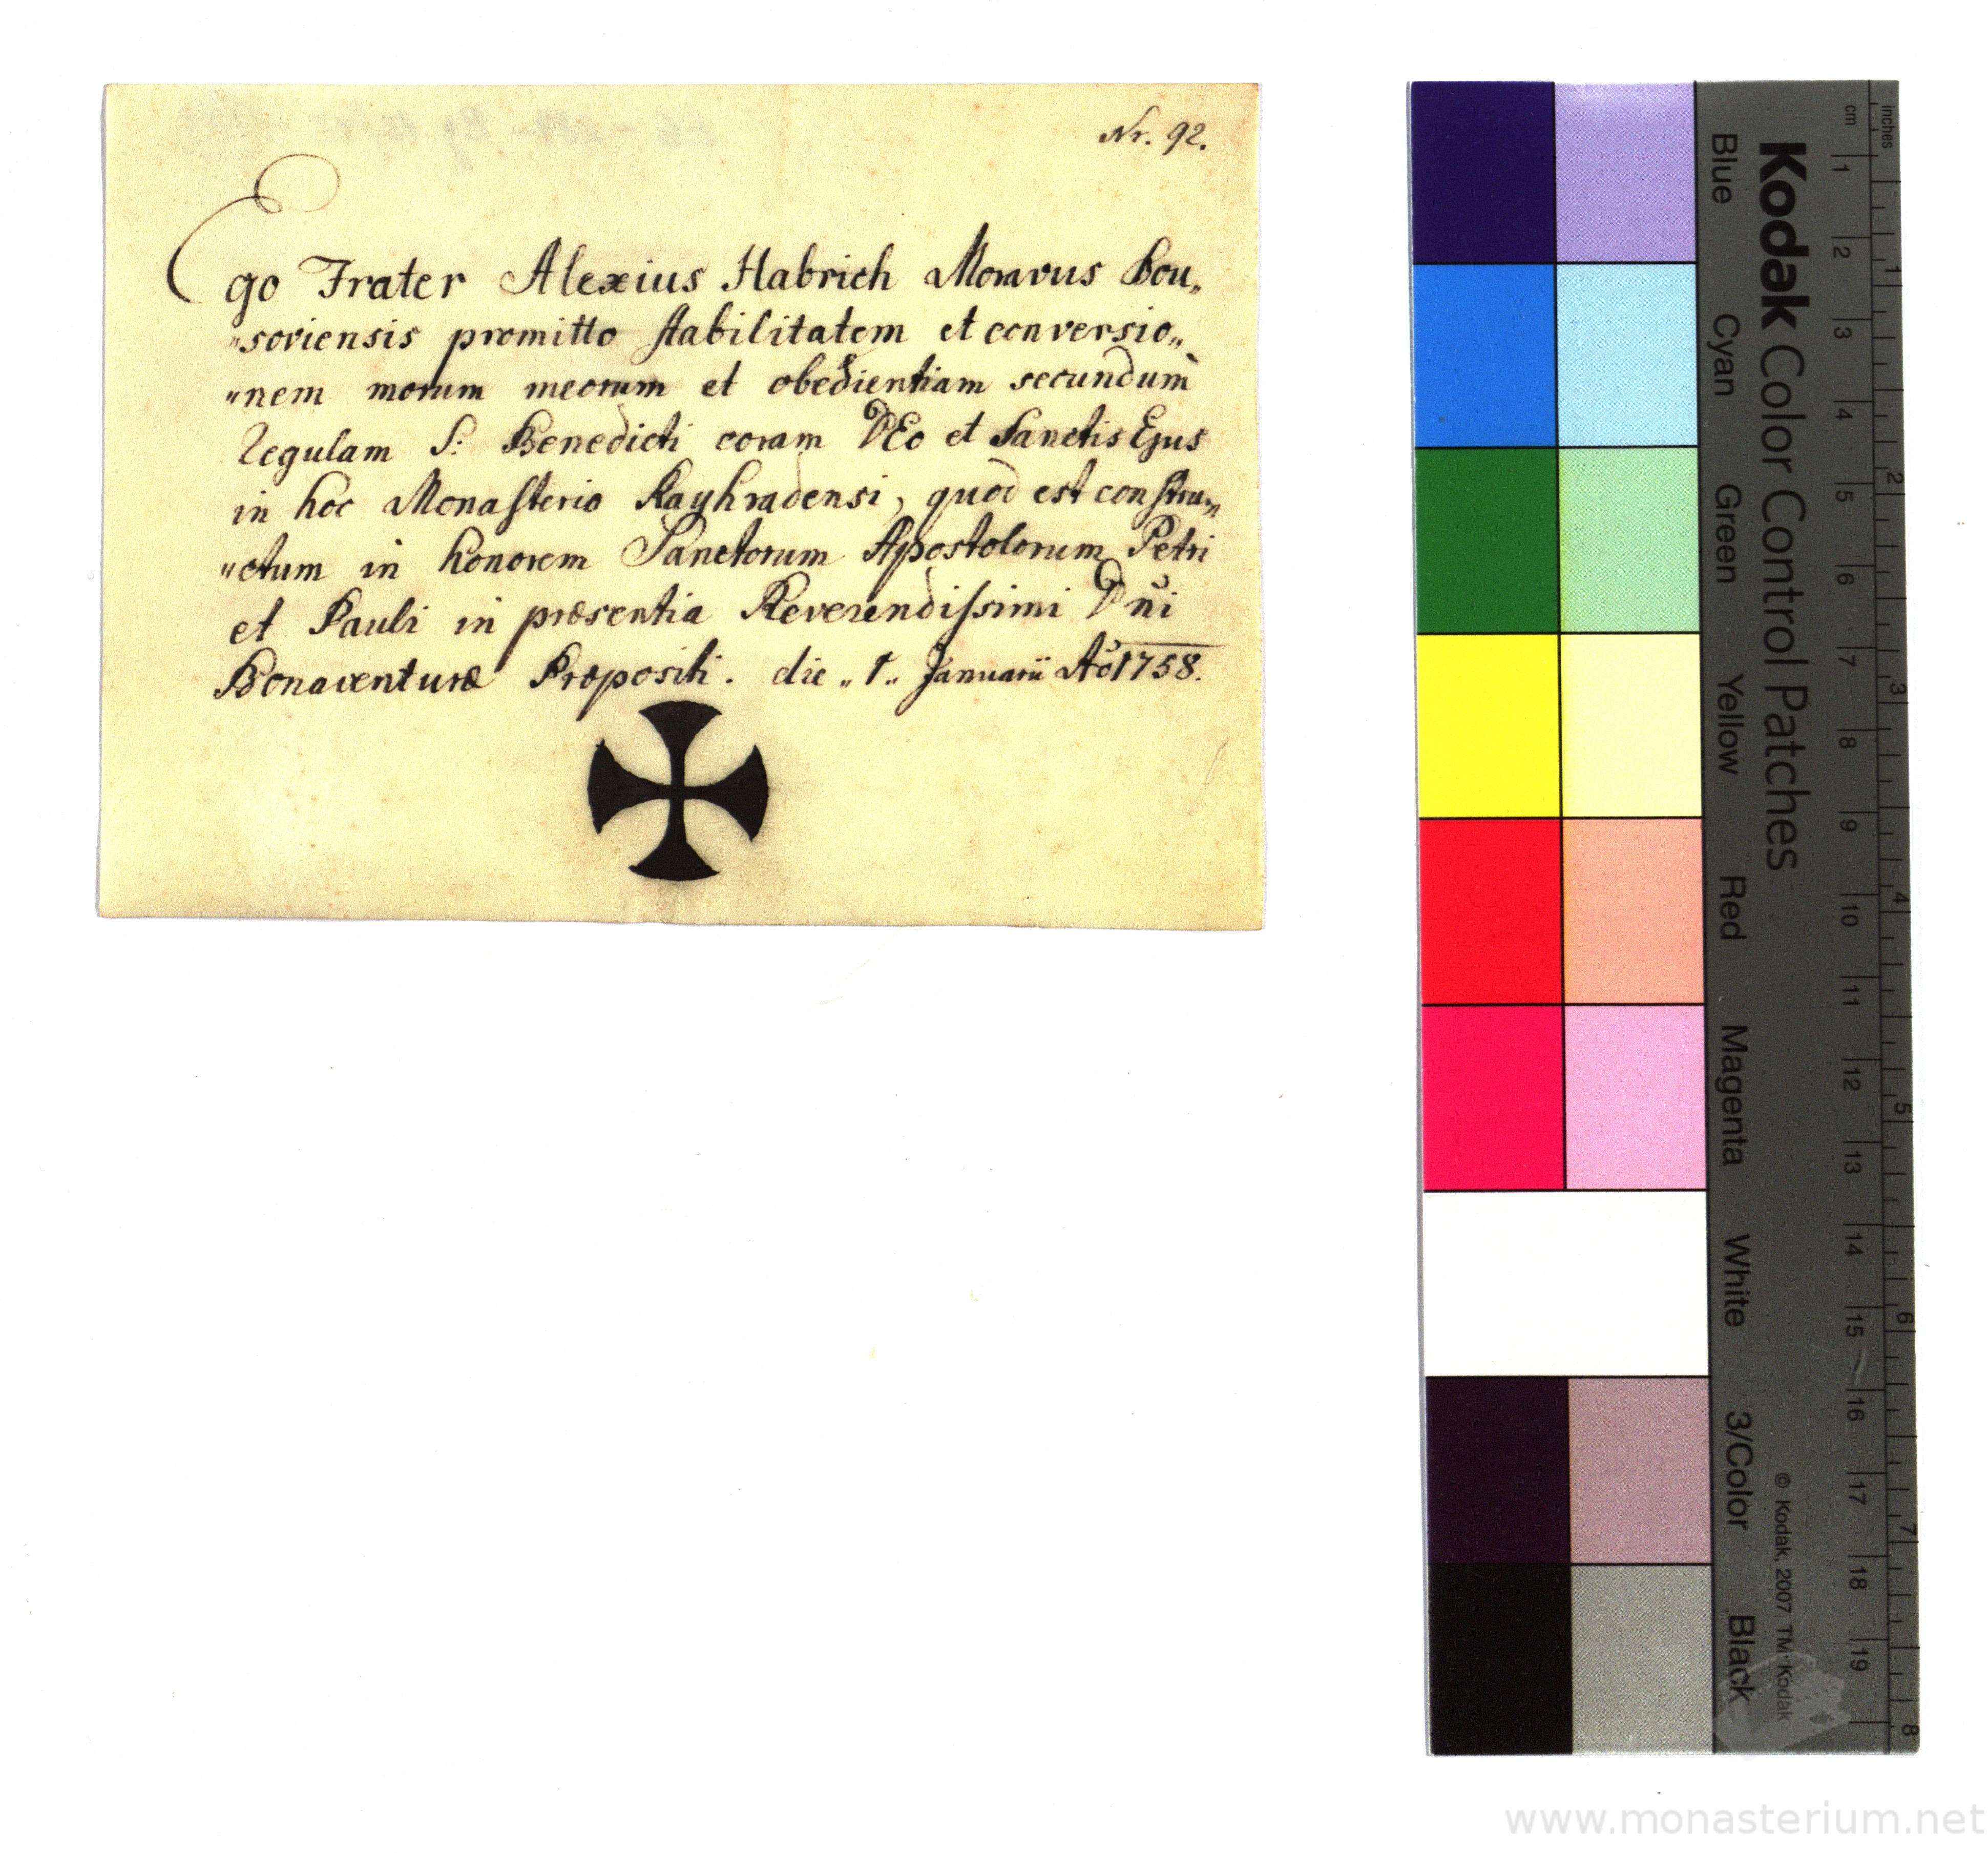 Nr. 92.
Ego Frater Alexius Habrich Moravus Bou„
„soviensis promitto stabilitatem et conversio„
„nem morum meorum et obedientiam secundum
Regulam S: Benedicti coram DEo et Sanctis Ejus
in hoc Monasterio Rayhradensi, quod est constru„
„ctum in honorem Sanctorum Apostolorum Petri
et Pauli in præsentia Reverendissimi Dn̄i
Bonaventuræ Præpositi. die „1„ Januarii Ao 1758.
Kodak Color Control Patches
Blue Cyan Green Yellow Red Magenta White 3/Color Black
© Kodak, 2007 TM: Kodak
inches 1 2 3 4 5 6 7 8
cm 1 2 3 4 5 6 7 8 9 10 11 12 13 14 15 16 17 18 19
www.monasterium.net